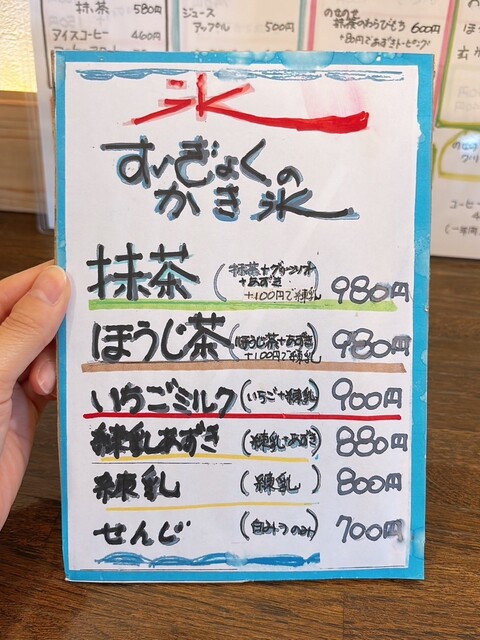 抹茶 580円
アイスコーヒー 460円
ジュース
アップル 500円
抹茶のわらびもち 600円
+80円であずきトッピング
氷
すいぎょくの
かき氷
抹茶 (抹茶+グリーンソフト+あずき +100円で練乳) 980円
ほうじ茶 (ほうじ茶+あずき +100円で練乳) 980円
いちごミルク (いちご+練乳) 900円
練乳あずき (練乳あずき) 880円
練乳 (練乳) 800円
せんじ (白みつのみ) 700円